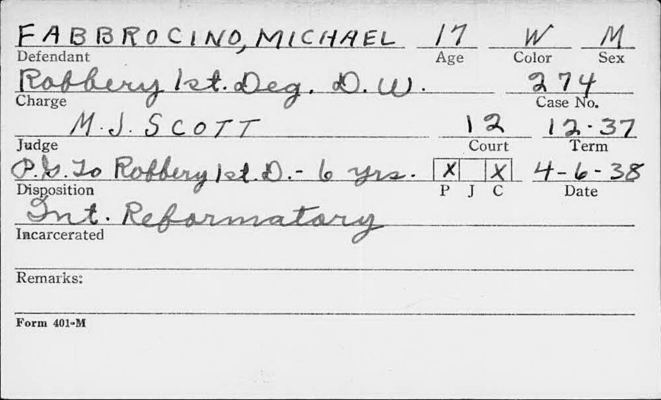 FABBROCINO, MICHAEL 17 W M
Defendant Age Color Sex
Robbery 1st. Deg. D. W. 274
Charge Case No.
M. J. SCOTT 12 12-37
Judge Court Term
P.G. To Robbery 1st. D. - 6 yrs. X X 4-6-38
Disposition P J C Date
Int. Reformatory
Incarcerated
Remarks:
Form 401-M